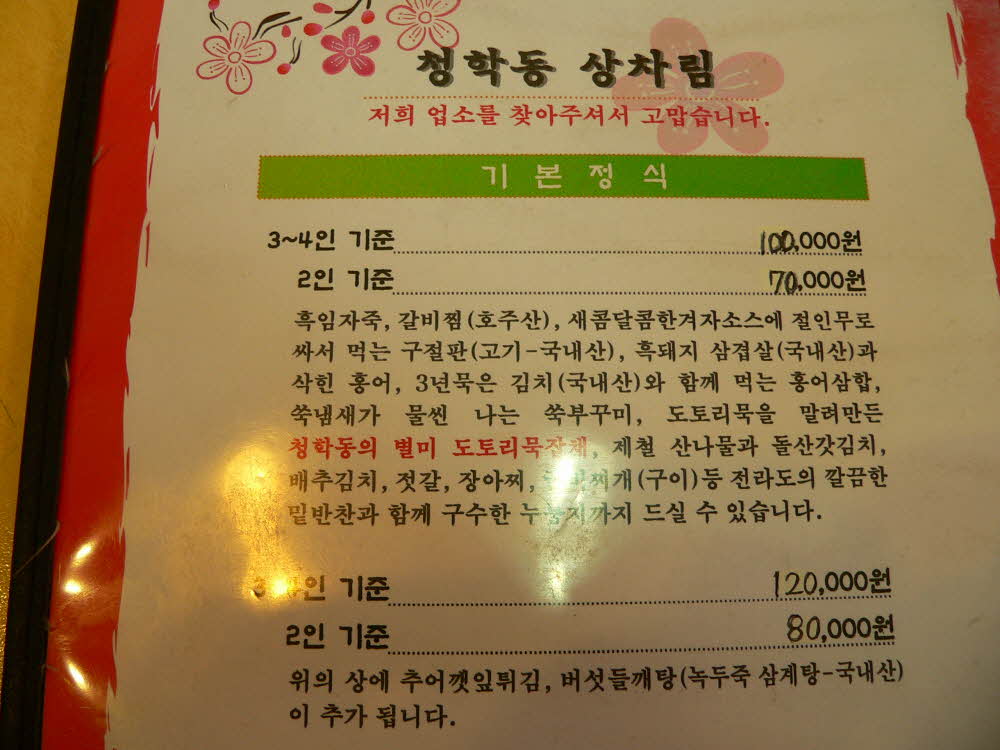 청학동 상차림
저희 업소를 찾아주셔서 고맙습니다.
기본정식
3~4인 기준 100,000원
2인 기준 70,000원
흑임자죽, 갈비찜(호주산), 새콤달콤한겨자소스에 절인무로
싸서 먹는 구절판(고기-국내산), 흑돼지 삼겹살(국내산)과
삭힌 홍어, 3년묵은 김치(국내산)와 함께 먹는 홍어삼합,
쑥냄새가 물씬 나는 쑥부꾸미, 도토리묵을 말려만든
청학동의 별미 도토리묵잡채, 제철 산나물과 돌산갓김치,
배추김치, 젓갈, 장아찌, (구이)등 전라도의 깔끔한
밑반찬과 함께 구수한 누룽지까지 드실 수 있습니다.
3~4인 기준 120,000원
2인 기준 80,000원
위의 상에 추어깻잎튀김, 버섯들깨탕(녹두죽 삼계탕-국내산)
이 추가 됩니다.